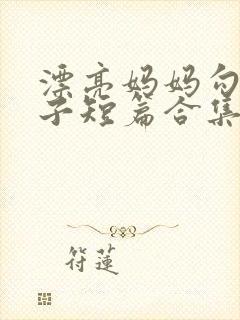 漂亮妈妈勾
子短篇合集
符莲